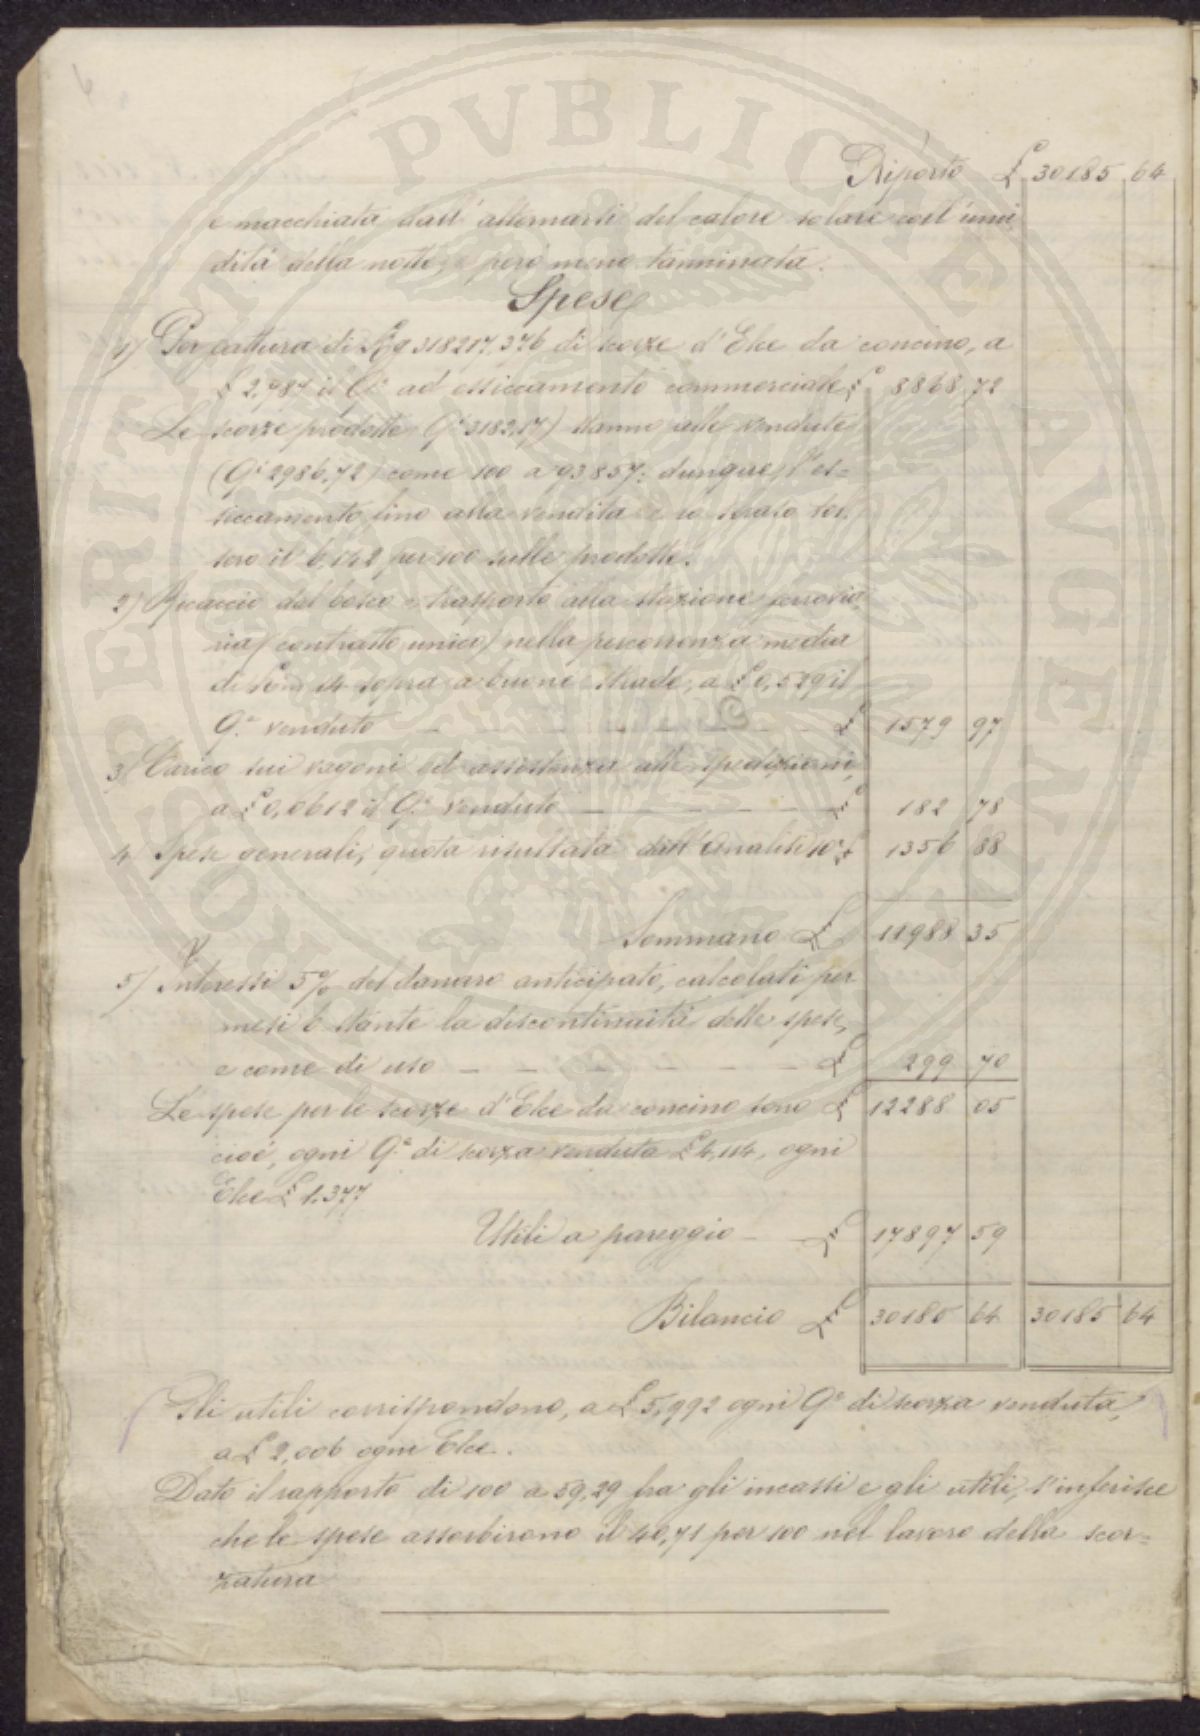 Riporto £ 30185 64
e macchiata dall'alternarsi del calore solare coll'umi
dità della notte, e però meno tanninata.
Spese
1) Per fattura di Kg 318217,376 di scorze d'Elce da concino, a
£ 2,787 il Qe ad essiccamento commerciale £ 8868 72
Le scorze prodotte (Qi 3182,17) stanno alle vendute
(Qi 2986,72) come 100 a 93857: dunque l'es=
siccamento fino alla vendita e lo sfrato tol
sero il 6,142 per 100 sulle prodotte.
2) Spaccio dal bosco e trasporto alla stazione ferrovia
ria (contratto unico) nella percorrenza media
di Km 14 sopra a buone strade, a £ 0,529 il
Qe venduto £ 1579 97
3) Carico sui vagoni ed assistenza alle spedizioni,
a £ 0,0612 il Qe venduto £ 182 78
4 Spese generali, quota risultata dall'Analisi 10a £ 1356 88
Sommano £ 11988 35
5) Interessi 5% del danaro anticipato, calcolati per
mesi 6 stante la discontinuità delle spese,
e come di uso £ 299 70
Le spese per le scorze d'Elce da concino sono £ 12288 05
cioè, ogni Qe di scorza venduta £ 4,114, ogni
Elce £ 1.377
Utili a pareggio £ 17897 59
Bilancio £ 30185 64 30185 64
Gli utili corrispondono, a £ 5,992 ogni Qe di scorza venduta,
a £ 2,006 ogni Elce.
Dato il rapporto di 100 a 59,29 fra gli incassi e gli utili, s'inferisce
che le spese assorbirono il 40,71 per 100 nel lavoro della scor=
zatura
PROSPERITATI PVBLICAE AVGENDAE